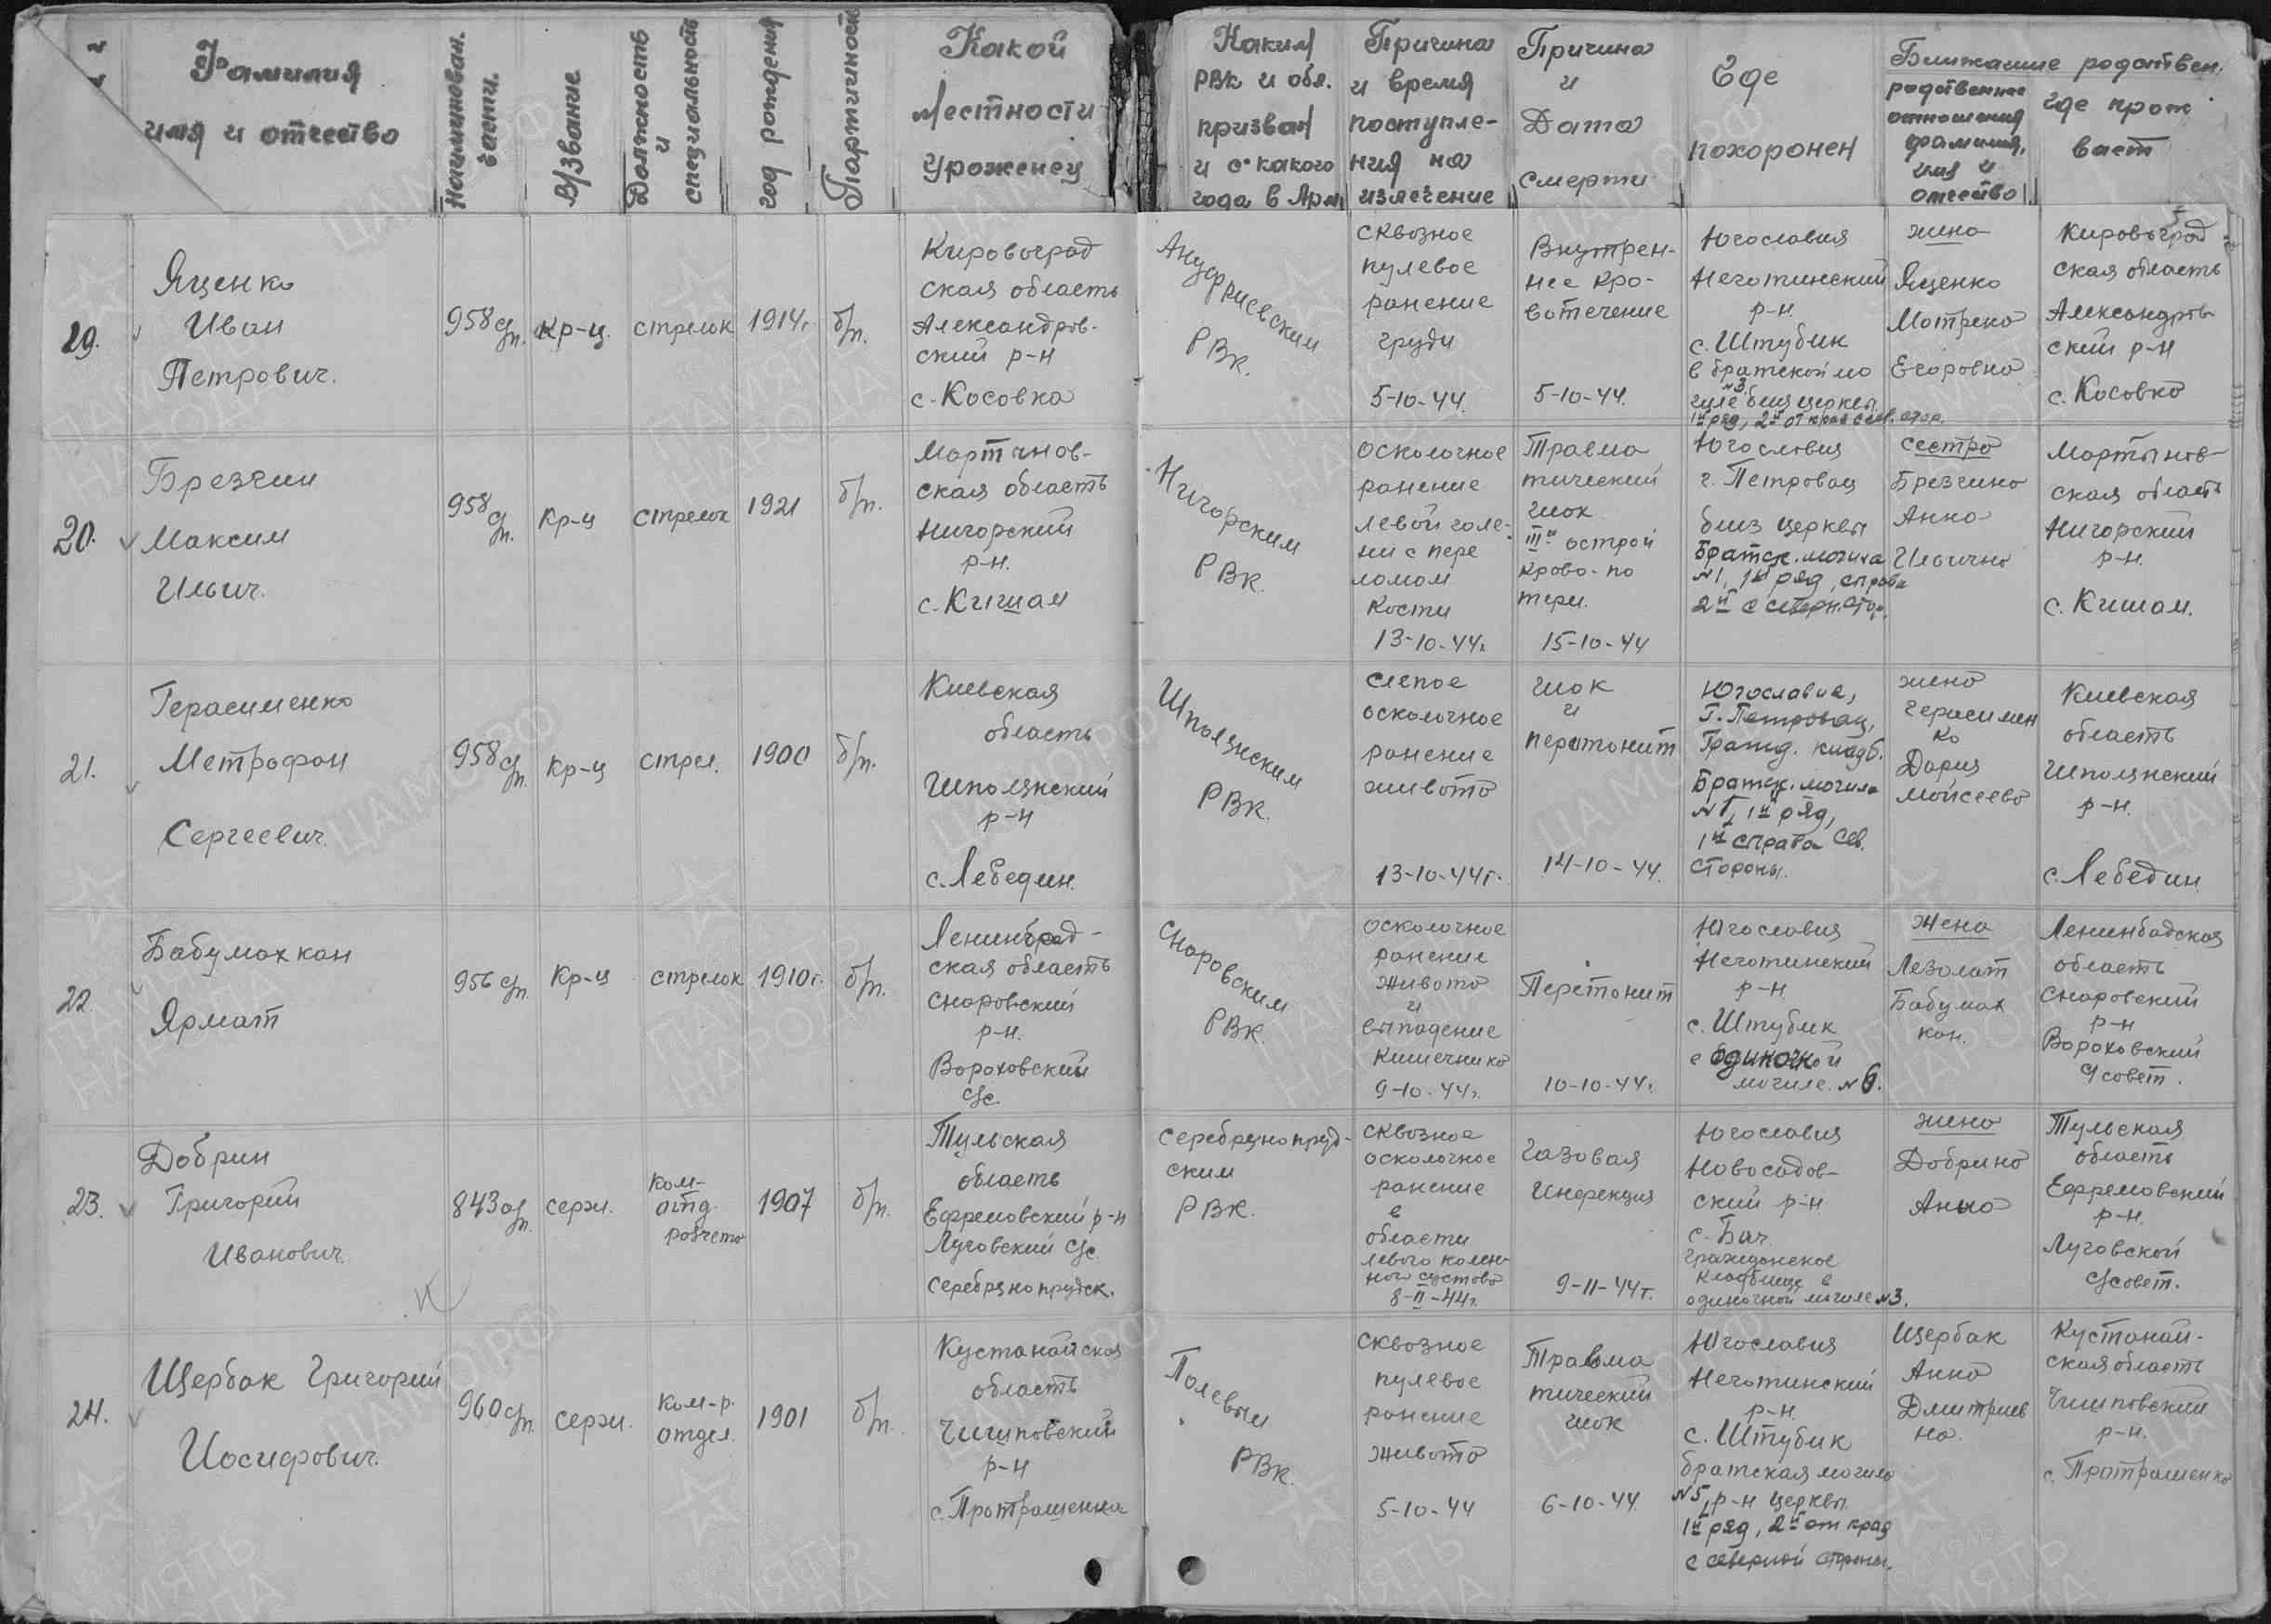 Фамилия
имя и отчество
Наименован.
части.
В/Звание
Должность
и
специальность
год рождения
Партийность
Какой
Местности
Уроженец
Каким
РВК и обл.
призван
и с какого
года в Арм.
Причина
и время
поступле-
ния на
излечение
Причина
и
Дата
смерти
Где
похоронен
Ближайшие родствен.
родственные
отношения
фамилия,
имя и
отчество
где прож
вает
19.
Яценко
Иван
Петрович.
958 сп.
Кр-ц.
стрелок
1914г.
б/п.
Кировоград
ская область
Александров-
ский р-н
с. Косовка
Ануфриевским
РВК.
сквозное
пулевое
ранение
груди
5-10-44.
Внутрен-
нее кро-
вотечение
5-10-44.
Югославия
Неготинский
р-н
с. Штубик
в братской мо
№3
гиле близ церквы
1й ряд, 2й от края сев. стор.
жена
Яценко
Мотрена
Егоровна
Кировоград
ская область
Александров
ский р-н
с. Косовка
20.
Брезгин
Максим
Ильич.
958 сп.
Кр-ц
стрелок
1921
б/п.
Мартынов-
ская область
Нигорский
р-н.
с. Кишам
Нигорским
РВК.
осколочное
ранение
левой голе-
ни с пере
ломом
кости
13-10-44г.
Травма
тический
шок
IIIй острой
крово-по
тери.
15-10-44
Югославия
г. Петровац
близ церквы
Братск. могила
№1, 1й ряд, справа
2й с северн. стор.
сестра
Брезгина
Анна
Ильична
Мартынов-
ская область
Нигорский
р-н.
с. Кишам.
21.
Герасименко
Метрофан
Сергеевич.
958 сп.
Кр-ц
стрел.
1900
б/п.
Киевская
область
Шполянский
р-н
с. Лебедин.
Шполянским
РВК.
слепое
осколочное
ранение
живота
13-10-44г.
шок
и
перитонит
14-10-44.
Югославия,
г. Петровац,
Гражд. кладб.
Братск. могила
№1, 1й ряд,
1й справа сев.
стороны.
жена
Герасимен
ко
Дария
Мойсеева
Киевская
область
Шполянский
р-н.
с. Лебедин.
22.
Бабумахкан
Ярмат
956 сп.
Кр-ц
стрелок
1910г.
б/п.
Ленинбад-
ская область
Снаровский
р-н.
Вороховский
с/с.
Снаровским
РВК.
осколочное
ранение
живота
и
выпадение
кишечника
9-10-44г.
Перетонит
10-10-44г.
Югославия
Неготинский
р-н.
с. Штубик
в одиночной
могиле. №6.
Жена
Лезолат
Бабумах
кан.
Ленинбадская
область
Снаровский
р-н
Вороховский
с/совет.
23.
Добрин
Григорий
Иванович.
843 ап.
серж.
ком-
отд.
расчета
1907
б/п.
Тульская
область
Ефремовский р-н
Луговский с/с.
серебрянопрудск.
Серебрянопруд-
ским
РВК.
сквозное
осколочное
ранение
в
области
левого колен-
ного сустава
8-II-44г.
газовая
инфекция
9-11-44г.
Югославия
Новосадов-
ский р-н
с. Бач.
гражданское
кладбище в
одиночной могиле №3.
жена
Добрина
Анна
Тульская
область
Ефремовский
р-н.
Луговской
с/совет.
24.
Щербак Григорий
Иосифович.
960 сп.
серж.
ком-р.
отдел.
1901
б/п.
Кустанайская
область
Чишповский
р-н
с. Протрашенка
Полевым
РВК.
сквозное
пулевое
ранение
живота
5-10-44
Травма
тический
шок
6-10-44.
Югославия
Неготинский
р-н.
с. Штубик
братская могила
№5, р-н церквы.
1й ряд, 2й от края
с северной стороны.
Щербак
Анна
Дмитриев
на.
Кустанай-
ская область
Чишповский
р-н.
с. Протрашенка